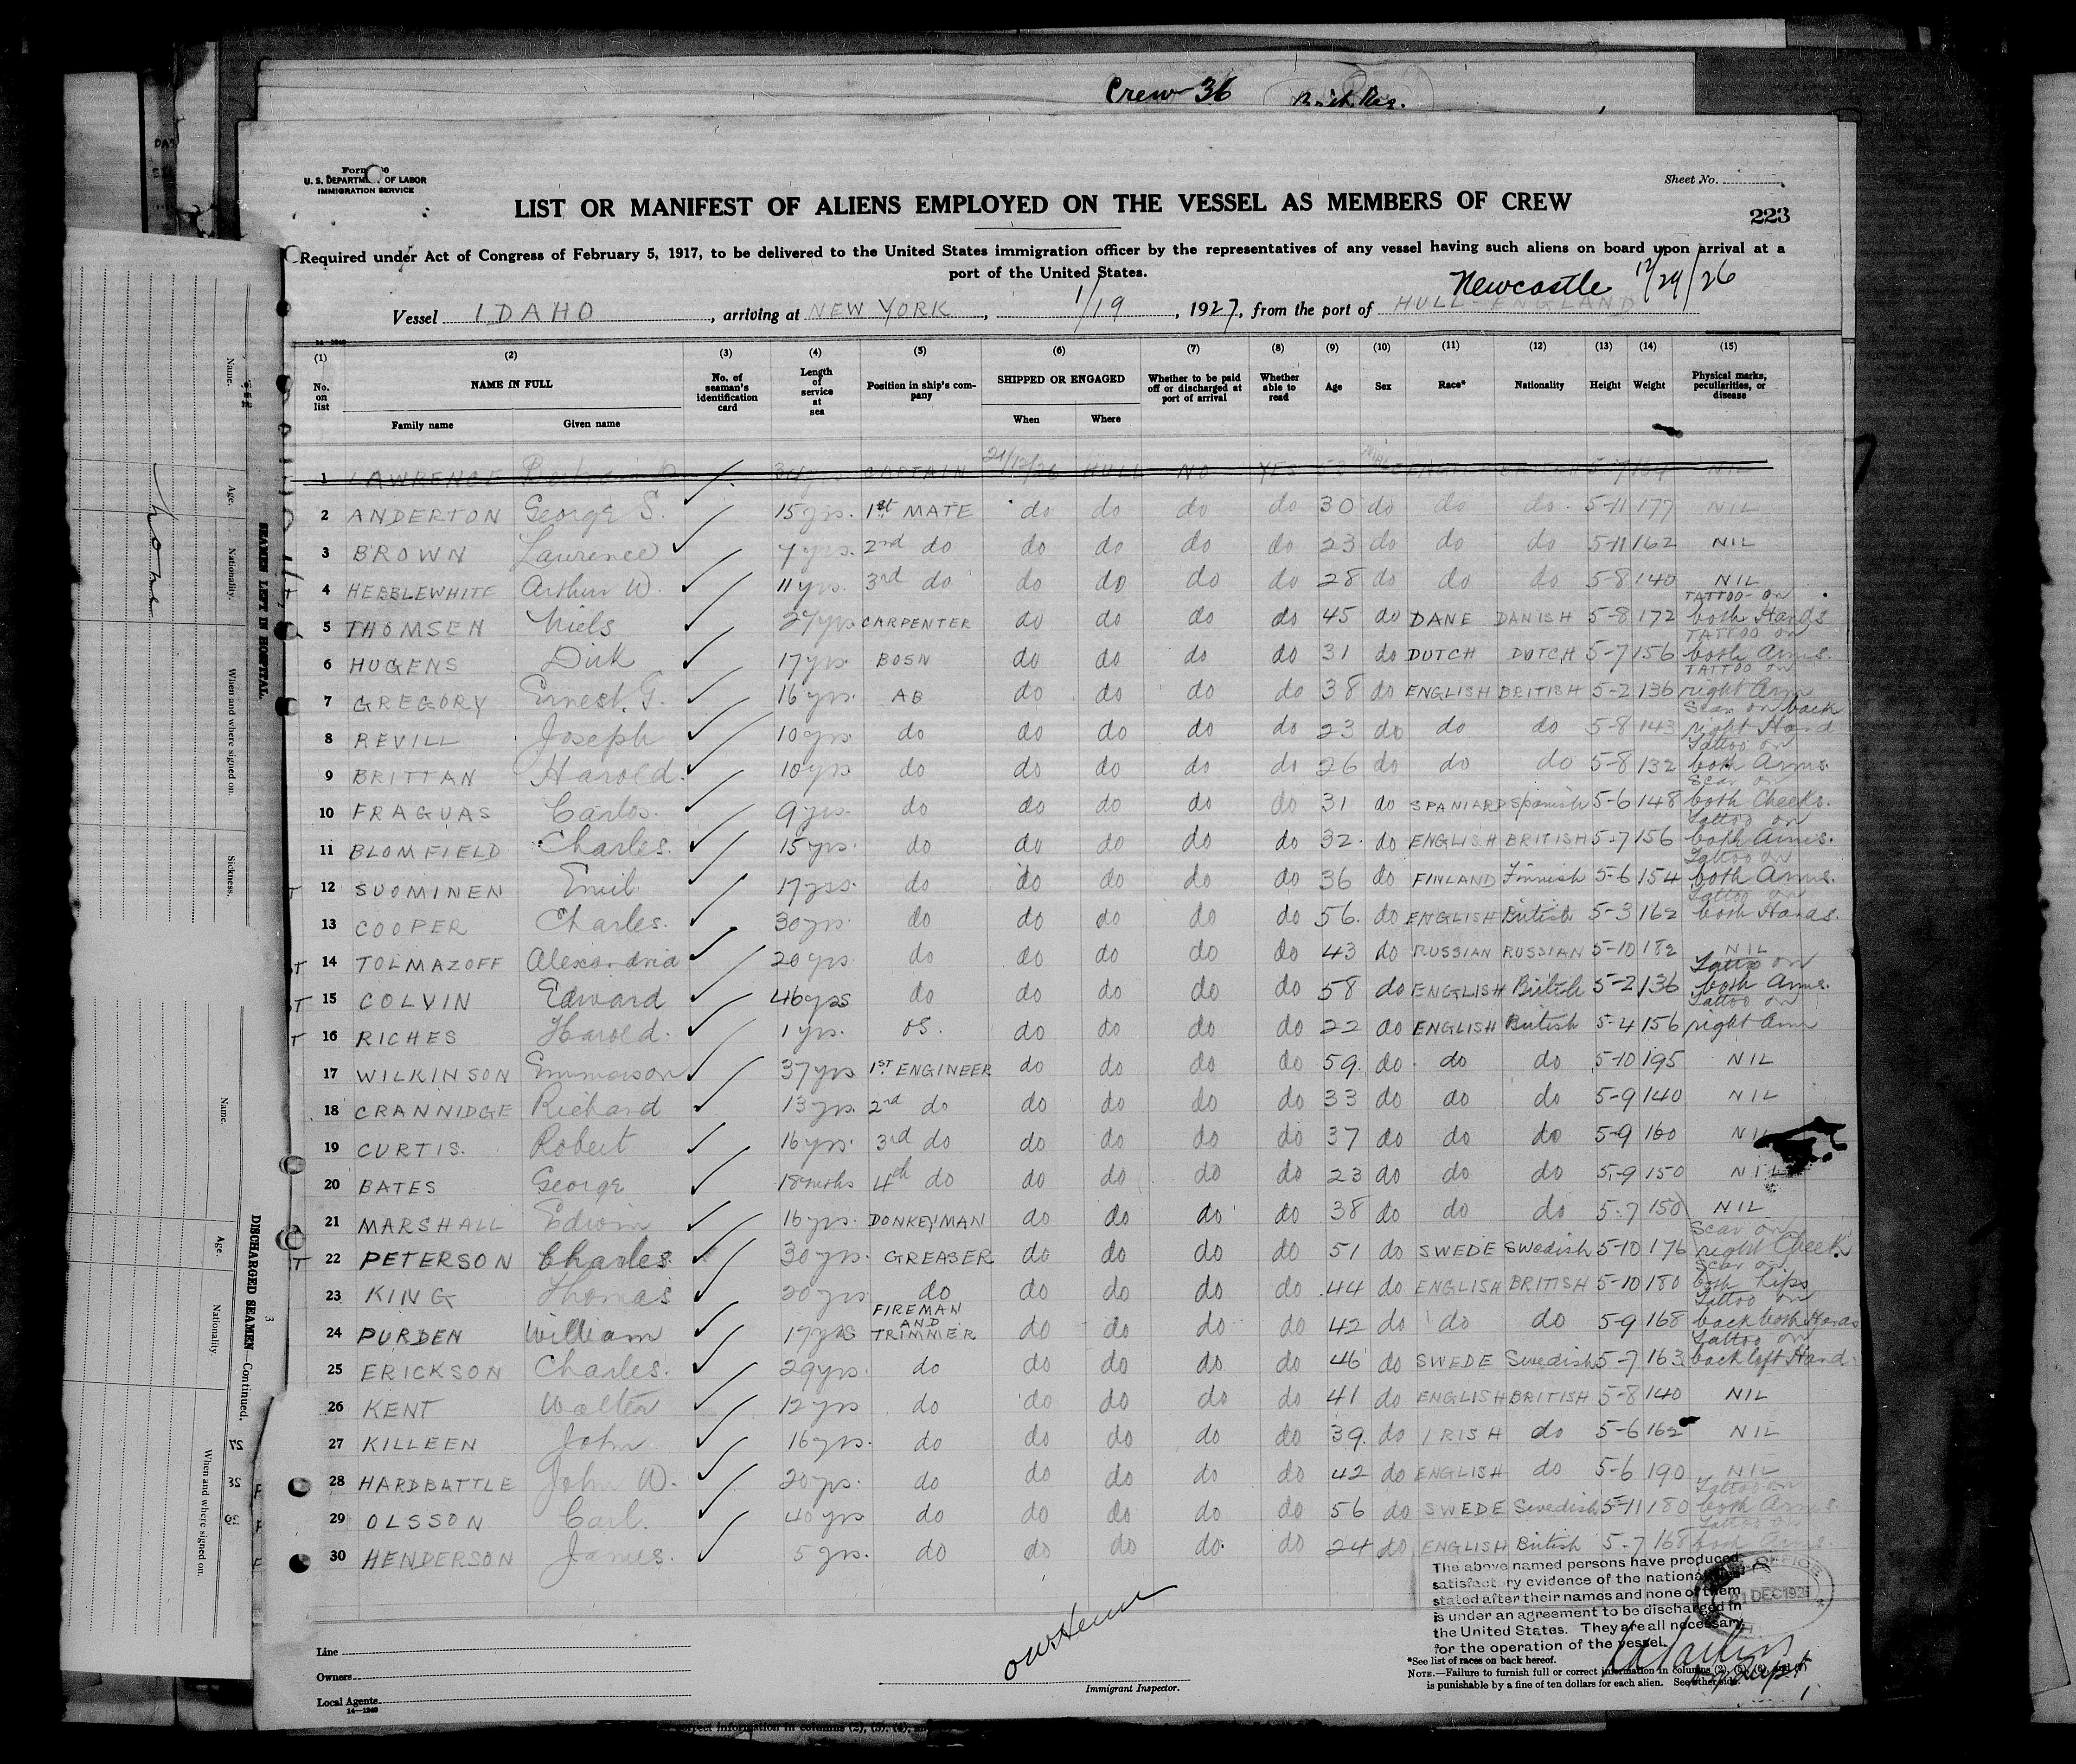 Crew 36 Brit. Reg.
U. S. DEPARTMENT OF LABOR
IMMIGRATION SERVICE
Sheet No.
LIST OR MANIFEST OF ALIENS EMPLOYED ON THE VESSEL AS MEMBERS OF CREW
223
Required under Act of Congress of February 5, 1917, to be delivered to the United States immigration officer by the representatives of any vessel having such aliens on board upon arrival at a
port of the United States.
Newcastle 12/29/26
Vessel IDAHO, arriving at NEW YORK, 1/19, 1927, from the port of HULL ENGLAND
(1) (2) (3) (4) (5) (6) (7) (8) (9) (10) (11) (12) (13) (14) (15)
No. on list NAME IN FULL Family name Given name No. of seaman's identification card Length of service at sea Position in ship's company SHIPPED OR ENGAGED When Where Whether to be paid off or discharged at port of arrival Whether able to read Age Sex Race* Nationality Height Weight Physical marks, peculiarities, or disease
1 LAWRENCE CAPTAIN 21/12/26 HULL NO YES NIL
2 ANDERTON George S. 15 yrs. 1st MATE do do do do 30 do do do 5-11 177 NIL
3 BROWN Laurence 7 yrs. 2nd do do do do do 23 do do do 5-11 162 NIL
4 HEBBLEWHITE Arthur W. 11 yrs. 3rd do do do do do 28 do do do 5-8 140 NIL
5 THOMSEN Niels 27 yrs CARPENTER do do do do 45 do DANE DANISH 5-8 172 TATTOO on both Hands
6 HUGENS Dirk 17 yrs. BOSN do do do do 31 do DUTCH DUTCH 5-7 156 TATTOO on both Arms.
7 GREGORY Ernest. G. 16 yrs. AB do do do do 38 do ENGLISH BRITISH 5-2 136 TATTOO on right Arm
8 REVILL Joseph 10 yrs. do do do do do 23 do do do 5-8 143 Scar on back right Hand
9 BRITTAN Harold. 10 yrs do do do do do 26 do do do 5-8 132 Tattoo on both Arms.
10 FRAGUAS Carlos. 9 yrs. do do do do do 31 do SPANIARD Spanish 5-6 148 Scar on both Cheeks.
11 BLOMFIELD Charles. 15 yrs. do do do do do 32. do ENGLISH BRITISH 5-7 156 Tattoo on both Arms.
12 SUOMINEN Emil 17 yrs. do do do do do 36 do FINLAND Finnish 5-6 154 Tattoo on both Arms.
13 COOPER Charles. 30 yrs. do do do do do 56. do ENGLISH British 5-3 162 Tattoo on both Hands.
14 TOLMAZOFF Alexandria 20 yrs. do do do do do 43 do RUSSIAN RUSSIAN 5-10 182 NIL
15 COLVIN Edward 46 yrs do do do do do 58 do ENGLISH British 5-2 136 Tattoo on both Arms.
16 RICHES Harold. 1 yrs. OS. do do do do 22 do ENGLISH British 5-4 156 Tattoo on right Arm
17 WILKINSON Emmerson 37 yrs 1ST ENGINEER do do do do 59. do do do 5-10 195 NIL
18 CRANNIDGE Richard 13 yrs. 2nd do do do do do 33 do do do 5-9 140 NIL
19 CURTIS. Robert 16 yrs. 3rd do do do do do 37 do do do 5-9 160 NIL
20 BATES George 18 mths 4th do do do do do 23 do do do 5-9 150 NIL
21 MARSHALL Edwin 16 yrs. DONKEYMAN do do do do 38 do do do 5-7 150 NIL
22 PETERSON Charles 30 yrs. GREASER do do do do 51 do SWEDE Swedish 5-10 176 Scar on right Cheek.
23 KING Thomas 20 yrs do do do do do 44 do ENGLISH BRITISH 5-10 180 Scar on both Lips
24 PURDEN William 17 yrs FIREMAN AND TRIMMER do do do do 42 do do do 5-9 168 Tattoo on back both Hands
25 ERICKSON Charles. 29 yrs. do do do do do 46 do SWEDE Swedish 5-7 163 Tattoo on back left Hand.
26 KENT Walter 12 yrs do do do do do 41 do ENGLISH BRITISH 5-8 140 NIL
27 KILLEEN John 16 yrs. do do do do do 39. do IRISH do 5-6 162 NIL
28 HARDBATTLE John W. 20 yrs. do do do do do 42 do ENGLISH do 5-6 190 NIL
29 OLSSON Carl. 40 yrs do do do do do 56 do SWEDE Swedish 5-11 180 Tattoo on both Arms.
30 HENDERSON James. 5 yrs. do do do do do 24 do ENGLISH British 5-7 168 Tattoo on both Arms.
The above named persons have produced
satisfactory evidence of the nationalities
stated after their names and none of them
is under an agreement to be discharged in
the United States. They are all necessary
for the operation of the vessel.
21 DEC 1926
Line
Owners
Local Agents
14—1240
Immigrant Inspector.
*See list of races on back hereof.
NOTE.—Failure to furnish full or correct information in columns (2), (5), (6), and (7)
is punishable by a fine of ten dollars for each alien. See other side.
SEAMEN LEFT IN HOSPITAL.
Name. Age. Nationality. When and where signed on. Sickness.
none
DISCHARGED SEAMEN—Continued.
Name. Age. Nationality. When and where signed on.